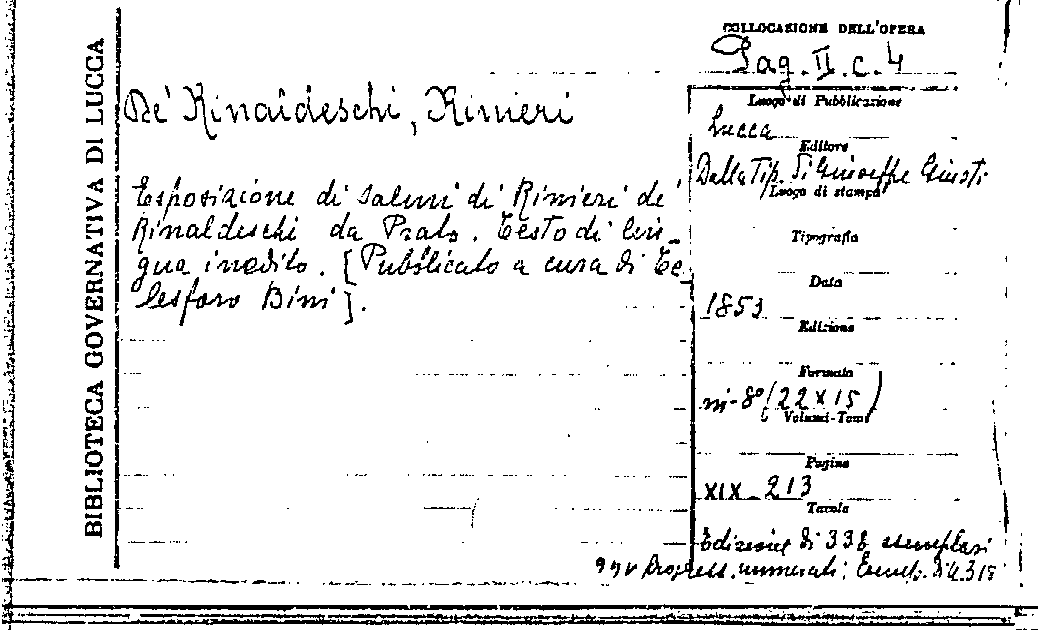 BIBLIOTECA GOVERNATIVA DI LUCCA
COLLOCAZIONE DELL'OPERA
Pag. II. c. 4
De' Rinaldeschi, Rinieri
Esposizione di salmi di Rinieri de'
Rinaldeschi da Prato. Testo di lin-
gua inedito. [Pubblicato a cura di Te
lesforo Bini].
Luogo di Pubblicazione
Lucca
Editore
Dalla Tip. di Giuseppe Giusti
Luogo di stampa
Tipografia
Data
1853
Edizione
Formato
in-8° (22 x 15)
Volumi-Tomi
Pagine
XIX - 213
Tavole
Edizione di 338 esemplari
numerati;